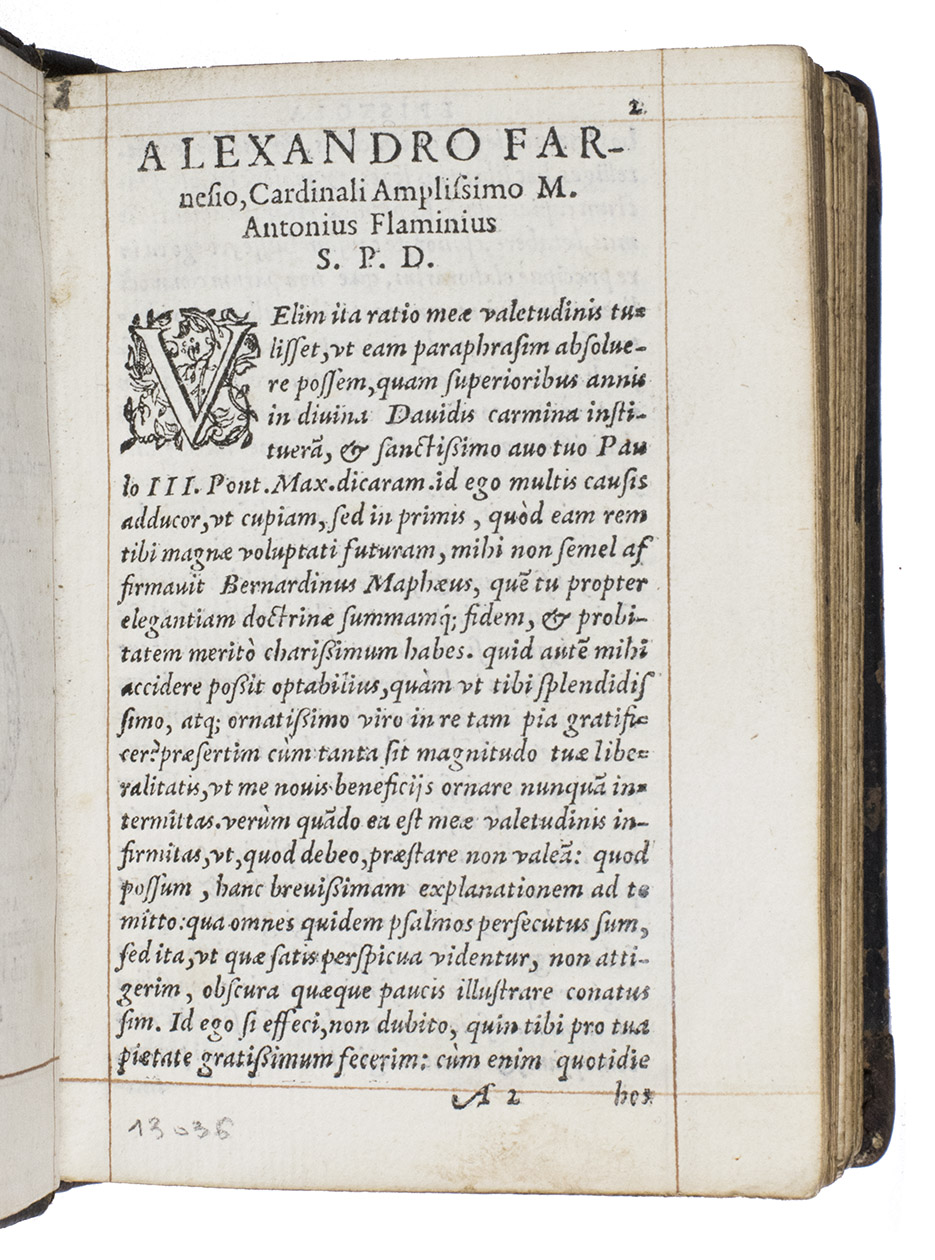 2
ALEXANDRO FAR-
neſio, Cardinali Ampliſsimo M.
Antonius Flaminius
S. P. D.
VElim ita ratio meæ valetudinis tu=
liſſet, vt eam paraphraſim abſolue-
re poſſem, quam ſuperioribus annis
in diuina Dauidis carmina inſti-
tuerã, & ſanctiſsimo auo tuo Pau
lo III. Pont. Max. dicaram. id ego multis cauſis
adducor, vt cupiam, ſed in primis, quòd eam rem
tibi magnæ voluptati futuram, mihi non ſemel af
firmauit Bernardinus Maphæus, quẽ tu propter
elegantiam doctrinæ ſummamq́; fidem, & probi-
tatem meritò chariſsimum habes. quid autẽ mihi
accidere poſsit optabilius, quàm vt tibi ſplendidiſ
ſimo, atq; ornatiſsimo viro in re tam pia gratifi=
cer? præſertim cùm tanta ſit magnitudo tuæ libe=
ralitatis, vt me nouis beneficijs ornare nunquã in=
termittas. verùm quãdo ea eſt meæ valetudinis in-
firmitas, vt, quod debeo, præſtare non valeã: quod
poſſum, hanc breuiſsimam explanationem ad te
mitto: qua omnes quidem pſalmos perſecutus ſum,
ſed ita, vt quæ ſatis perſpicua videntur, non atti-
gerim, obſcura quæque paucis illuſtrare conatus
ſim. Id ego ſi effeci, non dubito, quin tibi pro tua
pietate gratiſsimum fecerim: cùm enim quotidie
A 2 hos
13036